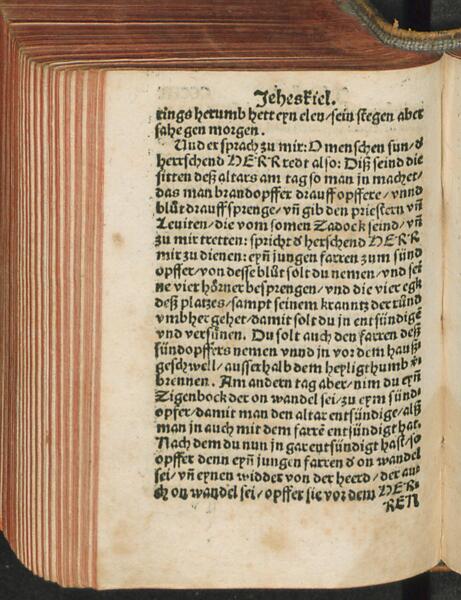 Jeheskiel.
rings herumb hett eyn elen/sein stegen aber
sahe gen morgen.
Vnd er sprach zu mir: O menschen sun/d̕
herrschend HERR redt also: Diß seind die
sitten deß altars am tag so man jn machet/
das man brandopffer drauff opffere/vnnd
blůt drauff sprenge/vñ gib den priestern vñ
Leuiten/die vom somen Zadock seind/vñ
zu mir tretten: spricht d̕ herschend HERR
mir zu dienen: eyñ jungen farren zum sünd
opffer/von desse blůt solt du nemen/vnd sei
ne vier hörner besprengen/vnd die vier egk
deß platzes/sampt seinem kranntz der rund
vmbher gehet/damit solt du jn entsündigē
vnd versünen. Du solt auch den farren deß
sündopffers nemen vnnd jn vor dem hauß
geschwell/ausserhalb dem heyligthumb v̕
brennen. Am andern tag aber/nim du eyñ
Zigenbock der on wandel sei/zu eym sünd
opfer/damit man den altar entsündige/alß
man jn auch mit dem farrē entsündigt hat.
Nach dem du nun jn gar entsündigt hast/so
opffer denn eyñ jungen farren d̕ on wandel
sei/vñ eynen widder von der heerd/der au
ch on wandel sei/opffer sie vor dem HER-
REN